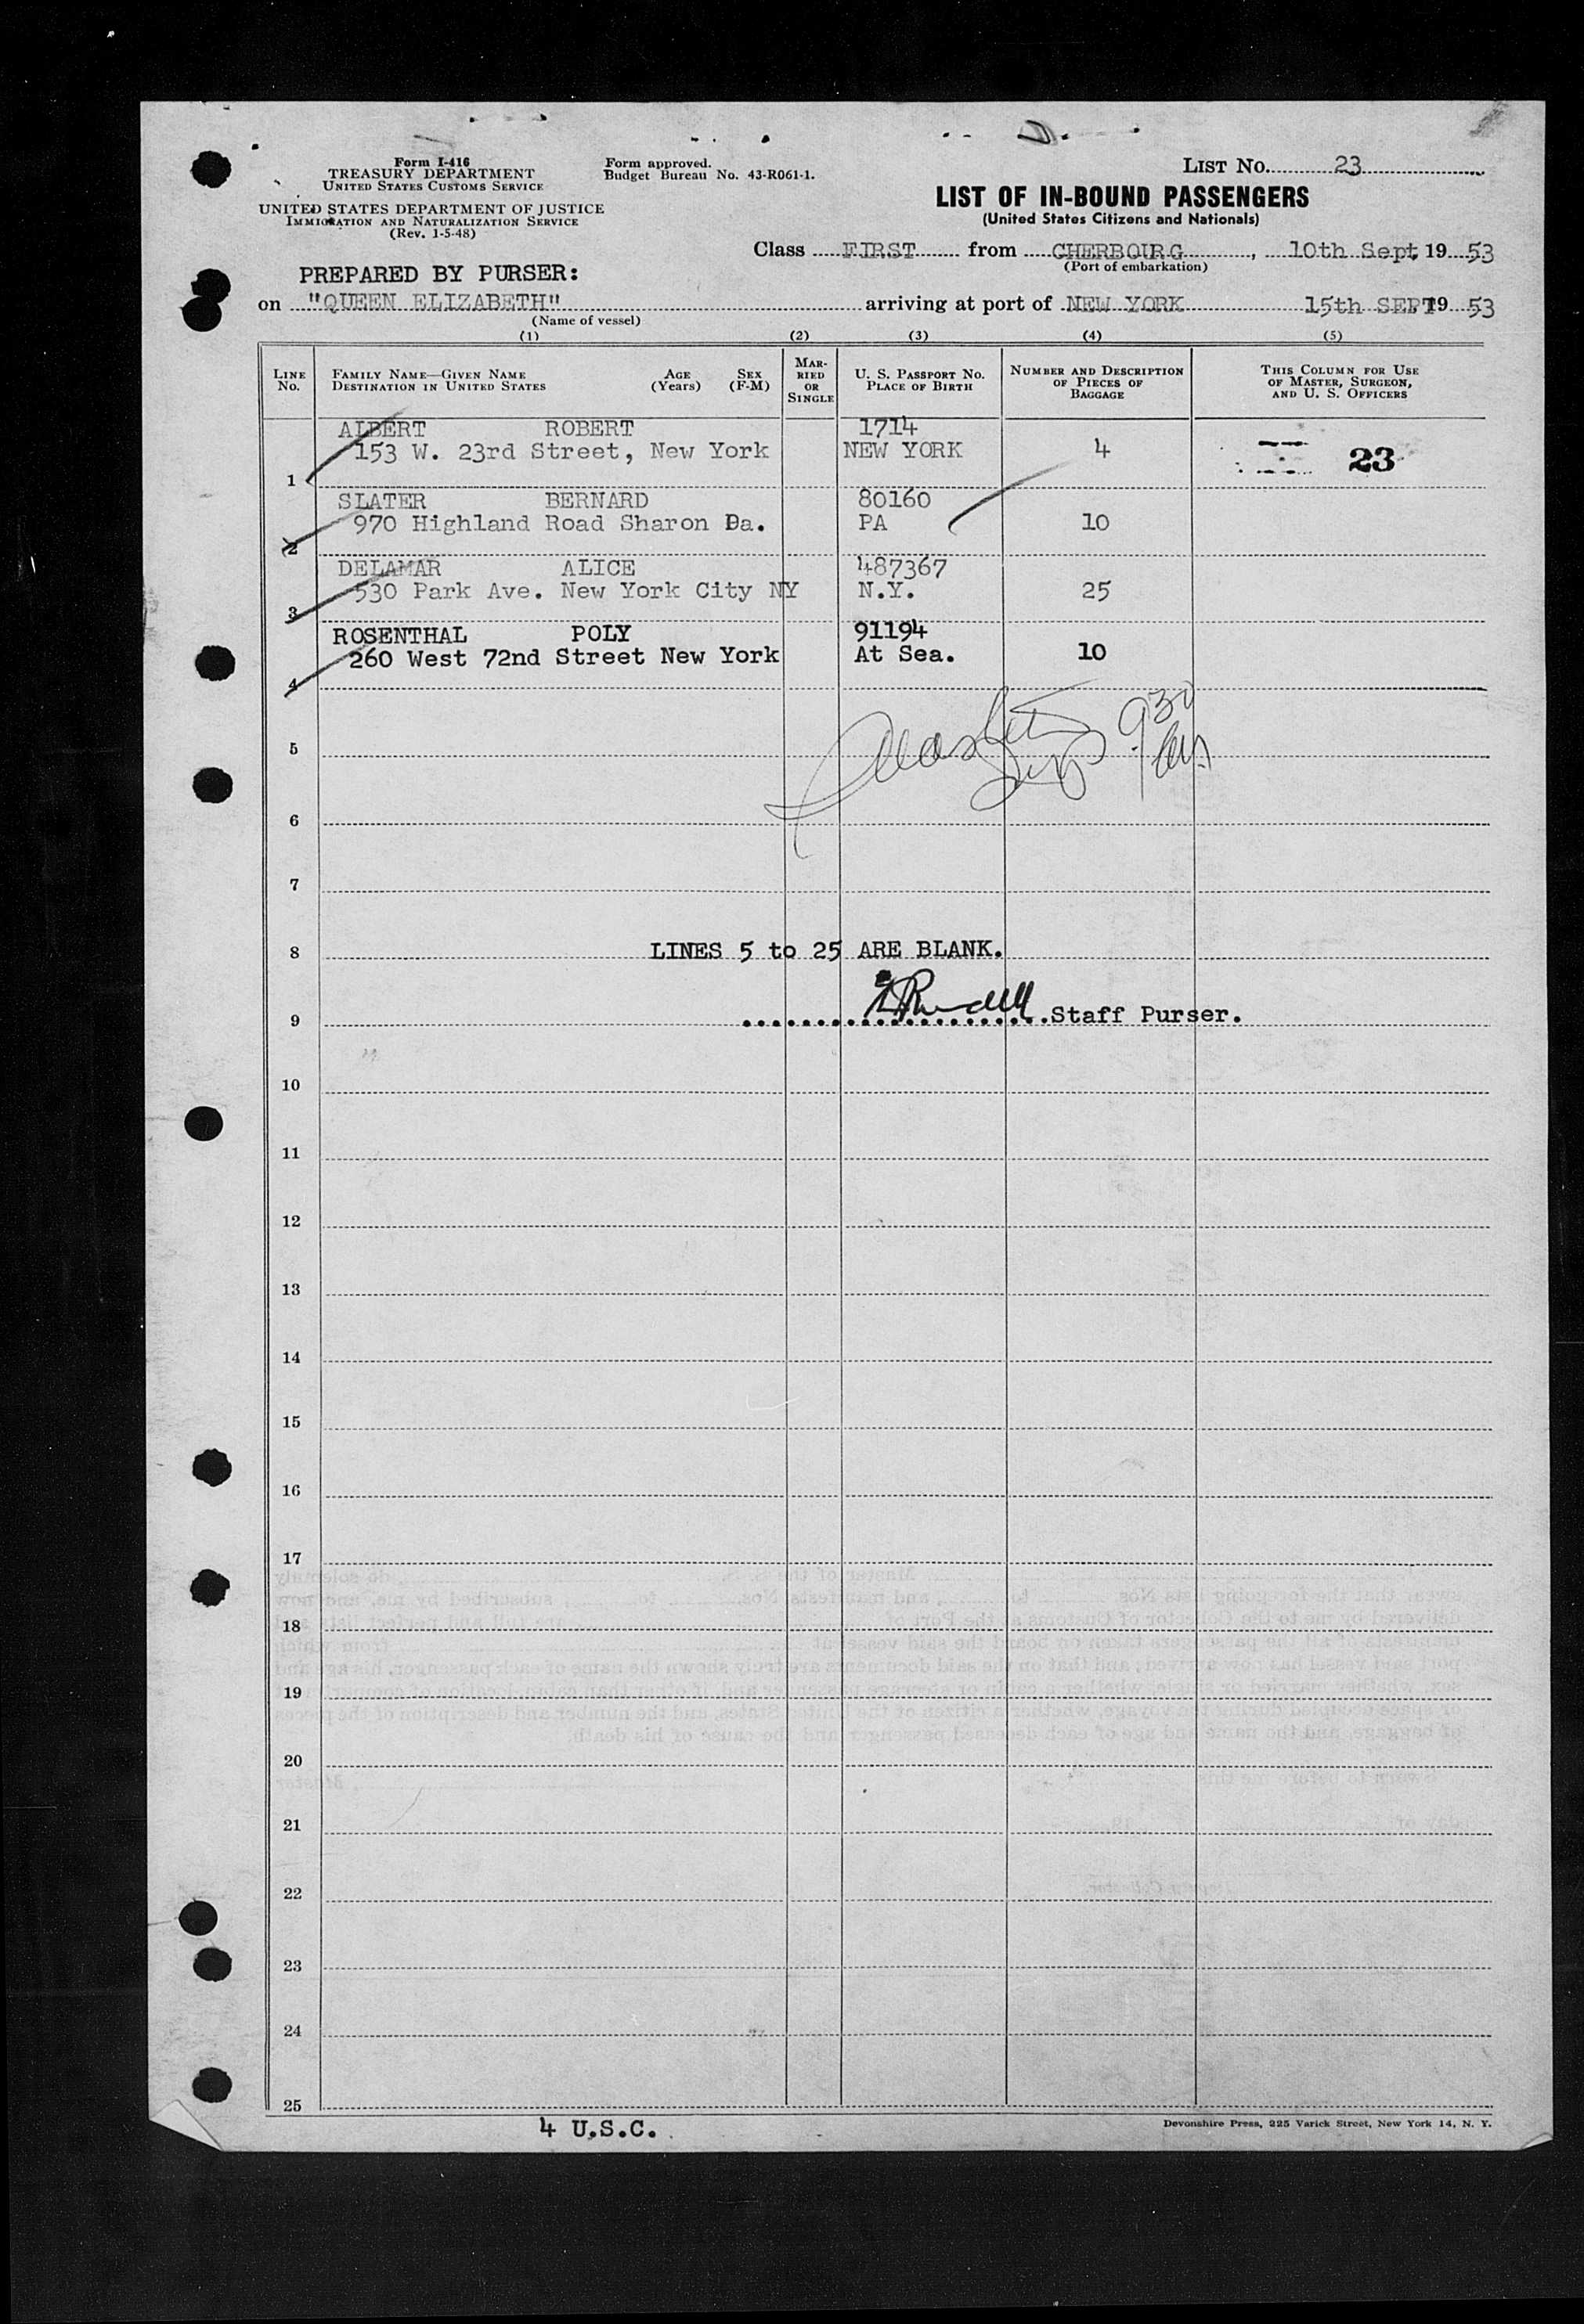 Form I-416
TREASURY DEPARTMENT
UNITED STATES CUSTOMS SERVICE
UNITED STATES DEPARTMENT OF JUSTICE
IMMIGRATION AND NATURALIZATION SERVICE
(Rev. 1-5-48)
Form approved.
Budget Bureau No. 43-R061-1.
LIST No. 23
LIST OF IN-BOUND PASSENGERS
(United States Citizens and Nationals)
Class FIRST from CHERBOURG, 10th Sept, 19 53
(Port of embarkation)
PREPARED BY PURSER:
on "QUEEN ELIZABETH" arriving at port of NEW YORK 15th SEPT 19 53
(Name of vessel)
(1) (2) (3) (4) (5)
LINE No. FAMILY NAME—GIVEN NAME DESTINATION IN UNITED STATES AGE (Years) SEX (F-M) MARRIED OR SINGLE U. S. PASSPORT NO. PLACE OF BIRTH NUMBER AND DESCRIPTION OF PIECES OF BAGGAGE THIS COLUMN FOR USE OF MASTER, SURGEON, AND U. S. OFFICERS
ALBERT ROBERT 1714
153 W. 23rd Street, New York NEW YORK 4 23
1
SLATER BERNARD 80160
970 Highland Road Sharon Pa. PA 10
2
DELAMAR ALICE 487367
530 Park Ave. New York City NY N.Y. 25
3
ROSENTHAL POLY 91194
260 West 72nd Street New York At Sea. 10
4
5
6
7
8 LINES 5 to 25 ARE BLANK.
9 Staff Purser.
10
11
12
13
14
15
16
17
18
19
20
21
22
23
24
25
4 U.S.C.
Devonshire Press, 225 Varick Street, New York 14, N. Y.